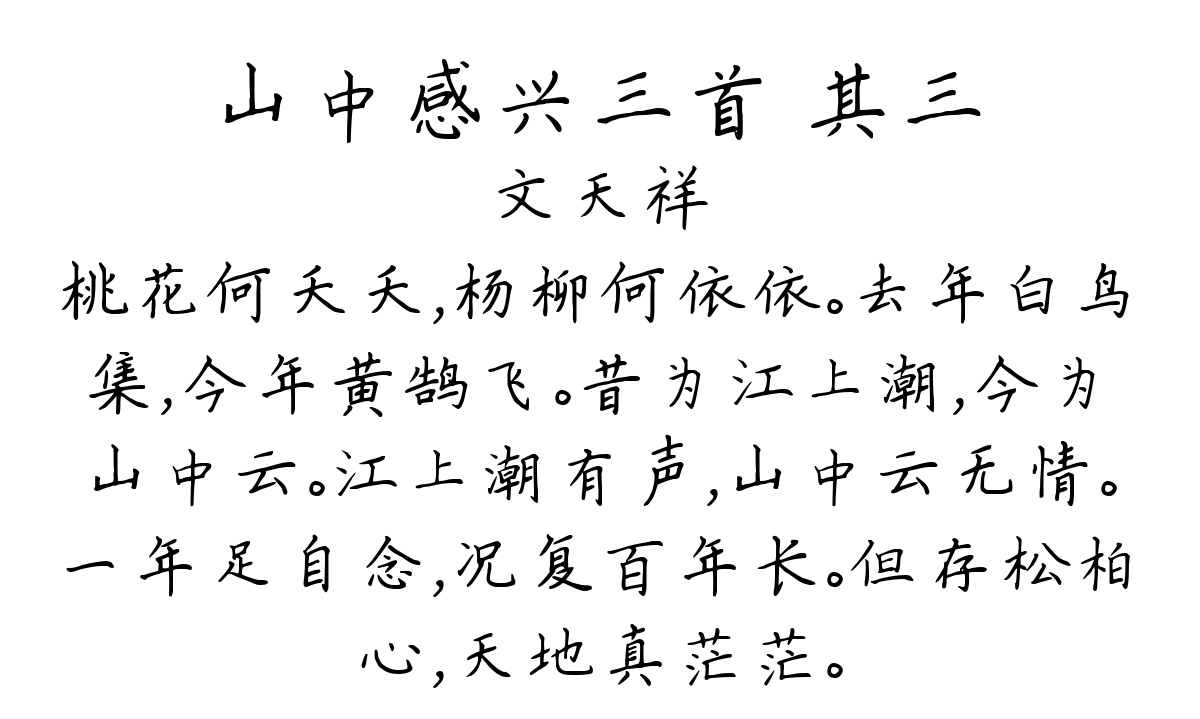 山中感兴三首 其三
文天祥
桃花何夭夭,杨柳何依依。去年白鸟
集,今年黄鹄飞。昔为江上潮,今为
山中云。江上潮有声,山中云无情。
一年足自念,况复百年长。但存松柏
心,天地真茫茫。